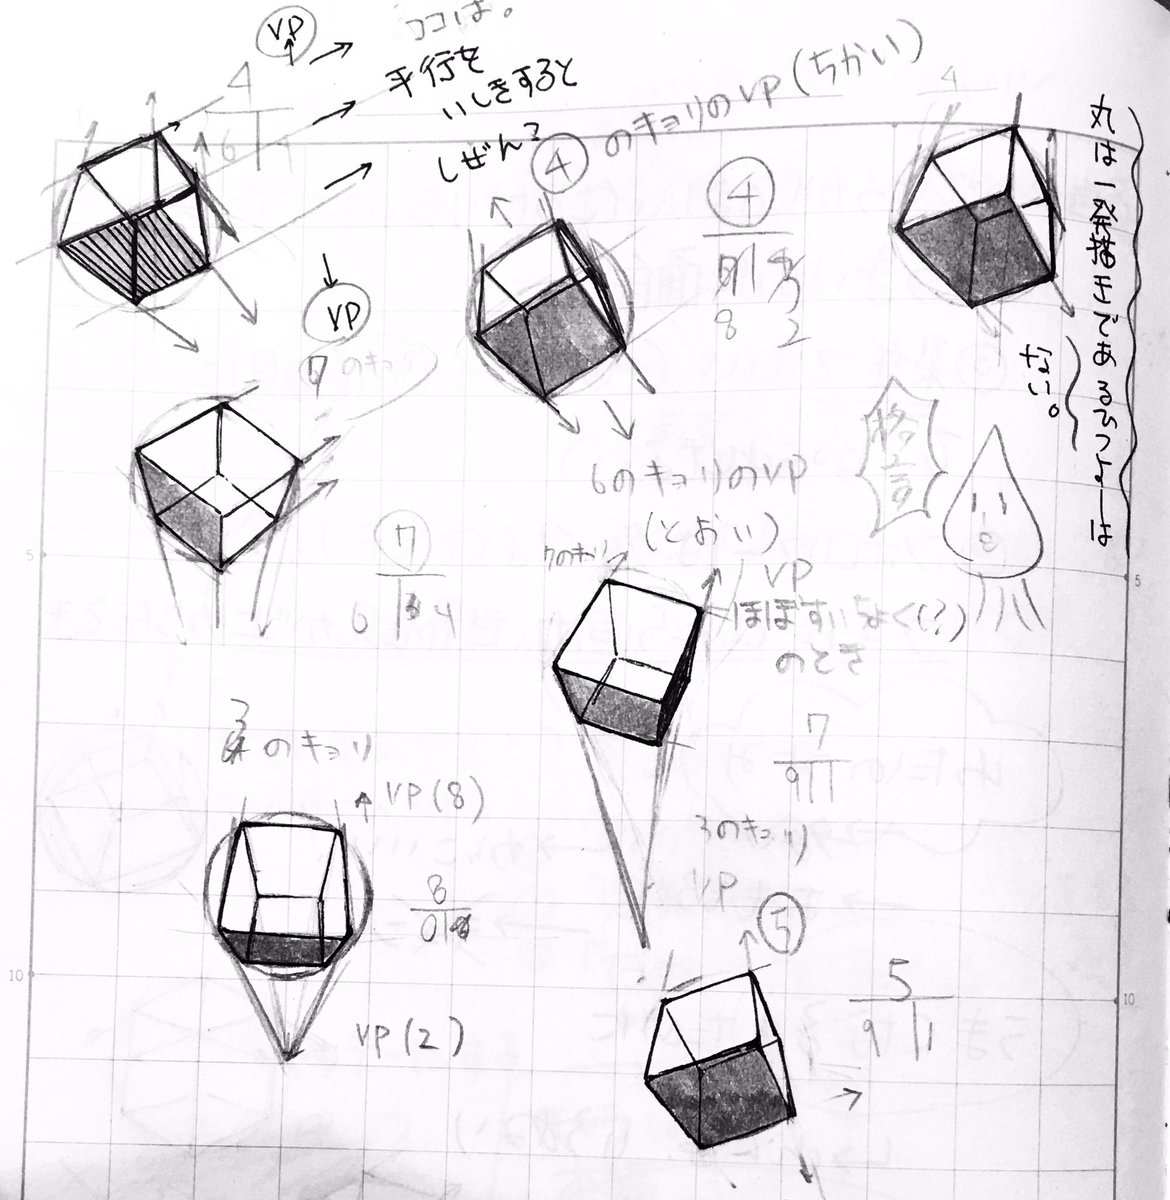 VP
ココは。
平行を
いしきすると
しぜん?
4
6
④のキョリのVP(ちかい)
④
8 2
4
丸は一発描きであるひつよーは
ない。
格言
VP
7のキョリ
⑦
6 4
6のキョリのVP
(とおい)
7のキョリ
VP
ほぼすいちょく(?)
のとき
7
9 1
3のキョリ
VP
3のキョリ
VP(8)
8
0
VP(2)
⑤
5
9 1
5
5
10
10